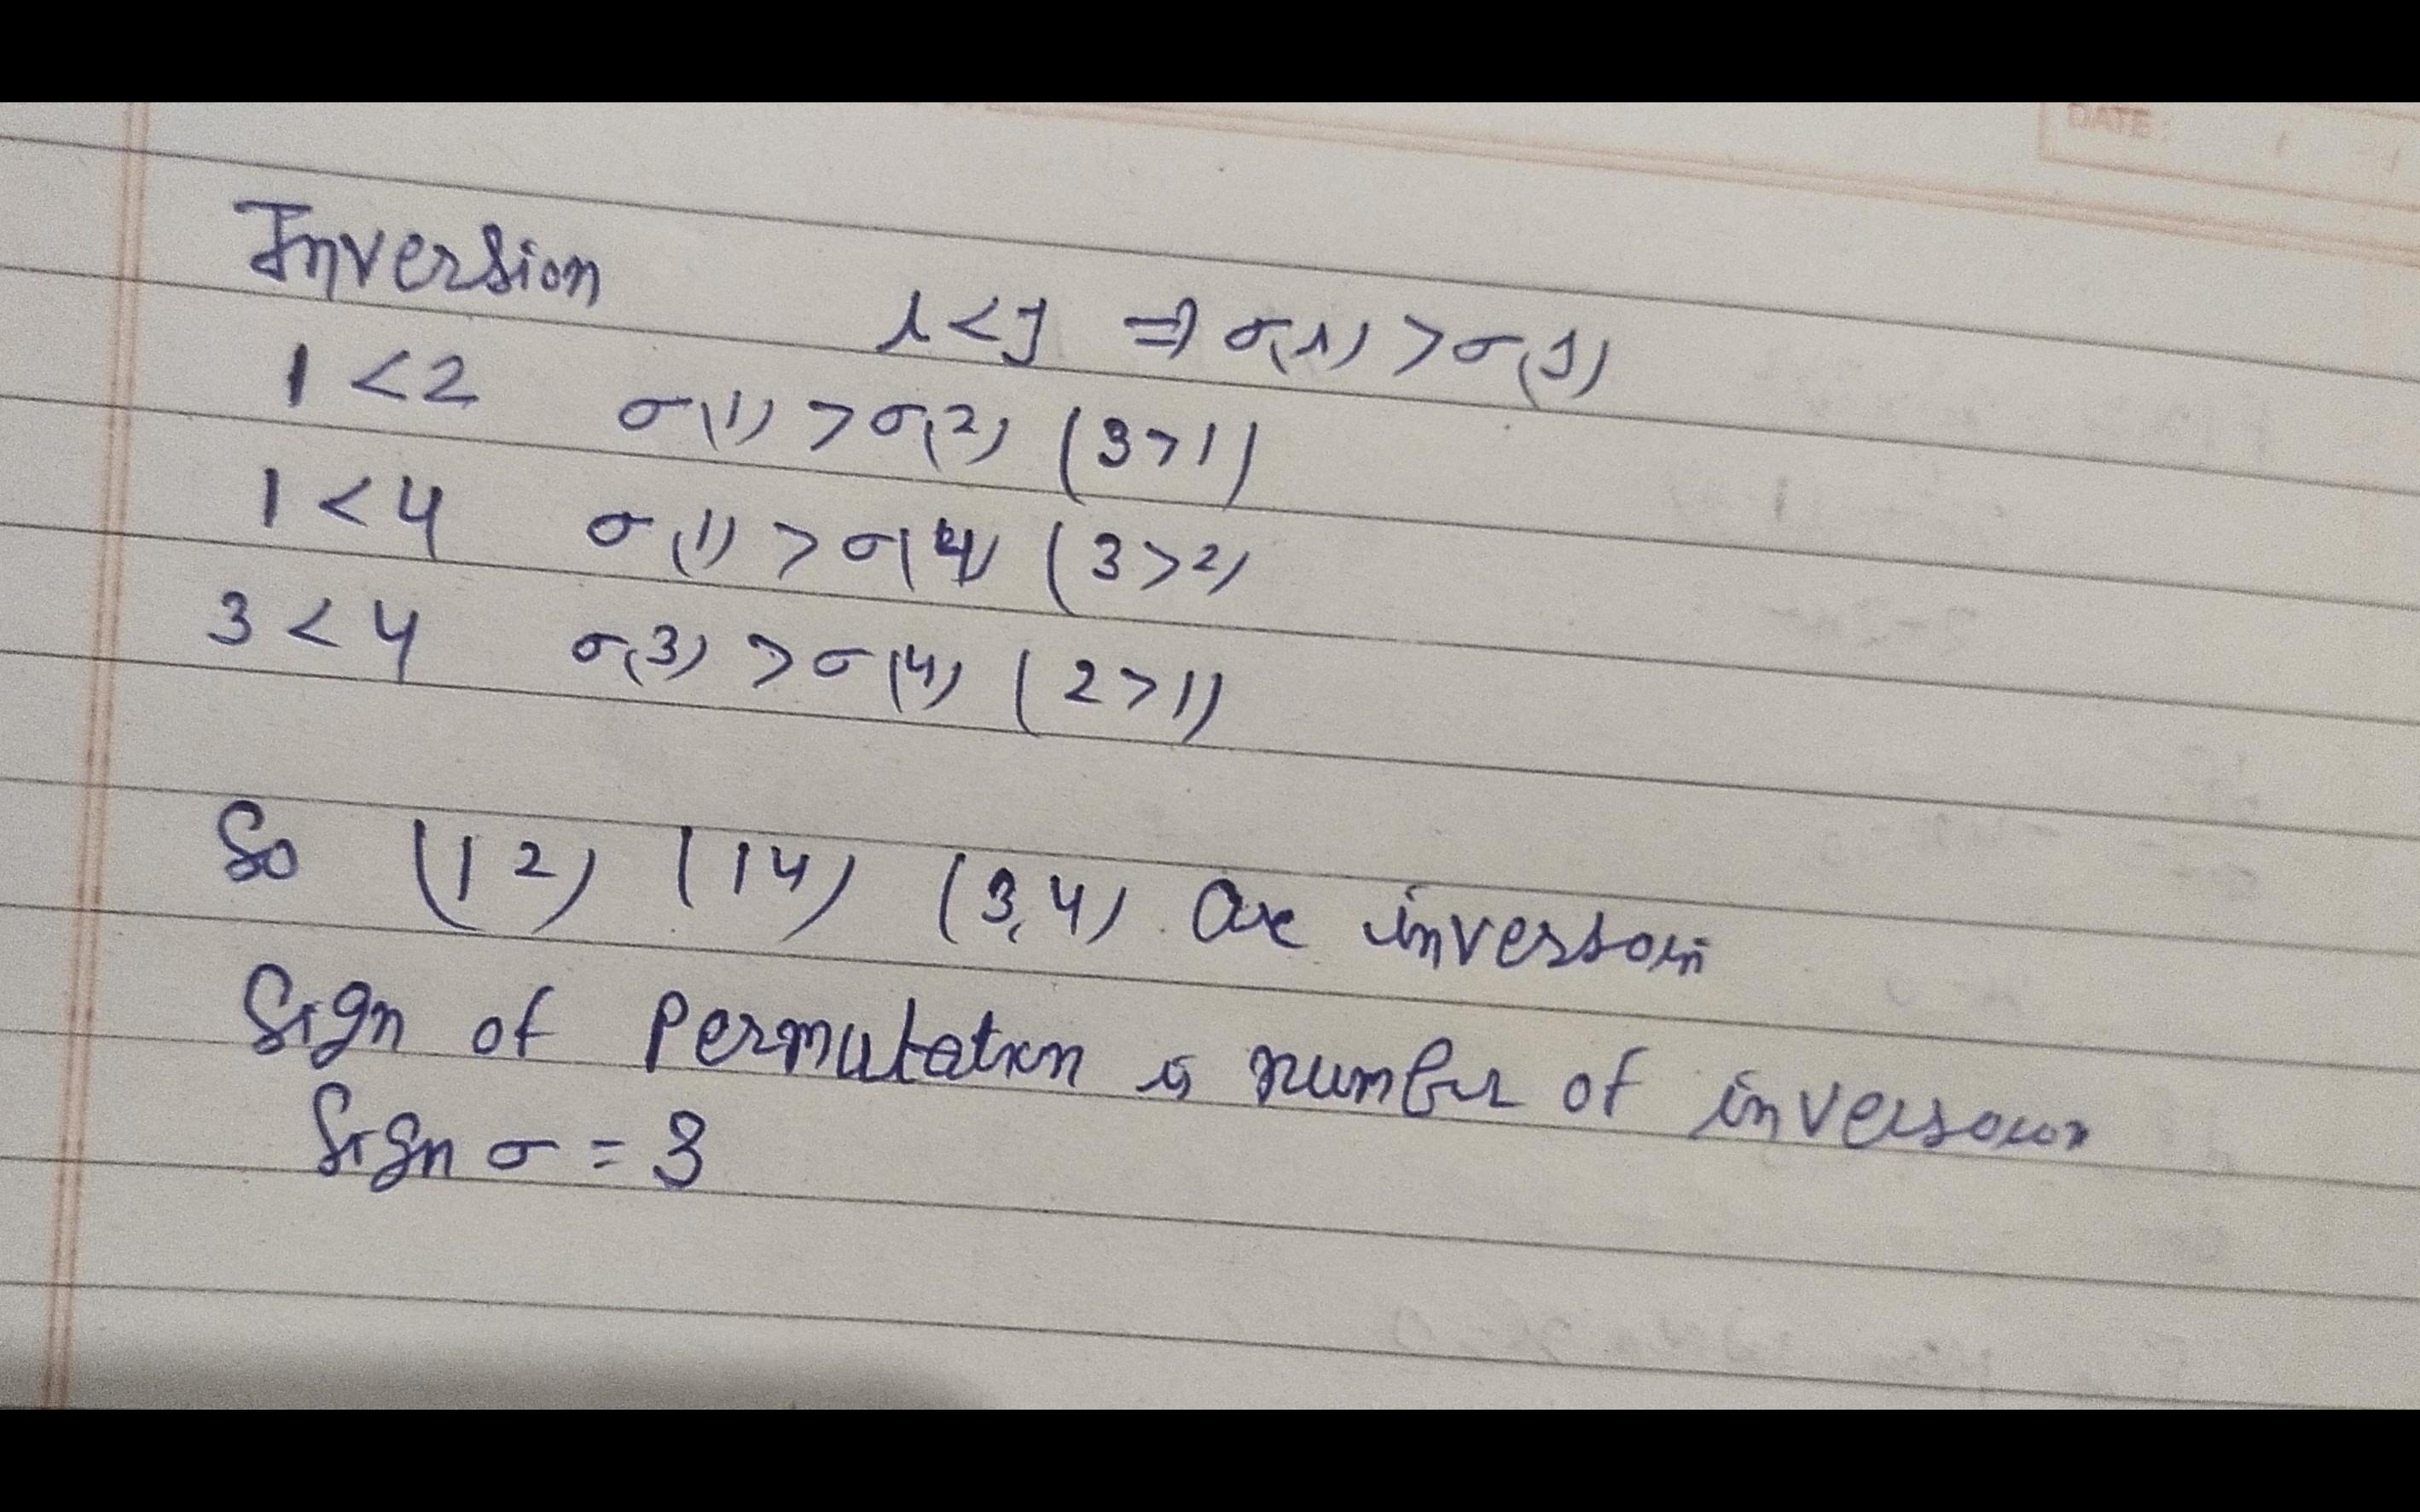 DATE
Inversion
i < j ⇒ σ(i) > σ(j)
1 < 2 σ(1) > σ(2) (3 > 1)
1 < 4 σ(1) > σ(4) (3 > 2)
3 < 4 σ(3) > σ(4) (2 > 1)
So (1 2) (1 4) (3, 4) are inversoin
Sign of Permutation is number of inversoion
Sign σ = 3